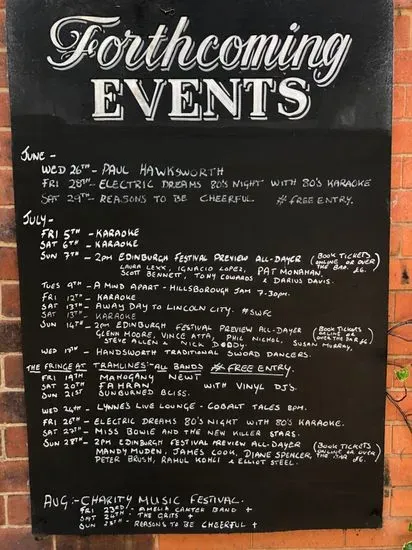 Forthcoming
EVENTS
JUNE -
WED 26TH - PAUL HAWKSWORTH
FRI 28TH - ELECTRIC DREAMS 80'S NIGHT WITH 80'S KARAOKE
SAT 29TH - REASONS TO BE CHEERFUL. * FREE ENTRY.
JULY -
FRI 5TH - KARAOKE
SAT 6TH - KARAOKE
SUN 7TH - 2PM EDINBURGH FESTIVAL PREVIEW ALL-DAYER (BOOK TICKETS
ONLINE OR OVER
THE BAR. £6.)
LAURA LEXX, IGNACIO LOPEZ, PAT MONAHAN,
SCOTT BENNETT, TONY COWARDS & DARIUS DAVIS.
TUES 9TH - A MIND APART - HILLSBOROUGH JAM 7-30PM.
FRI 12TH - KARAOKE
SAT 13TH - AWAY DAY TO LINCOLN CITY. #SWFC
SAT 13TH - KARAOKE
SUN 14TH - 2PM EDINBURGH FESTIVAL PREVIEW ALL-DAYER (BOOK TICKETS
ONLINE OR
OVER THE BAR £6)
GLENN MOORE, VINCE ATTA, PHIL NICHOL, SUSAN MURRAY,
STEVE ALLEN & NICK DOODY.
WED 17TH - HANDSWORTH TRADITIONAL SWORD DANCERS.
THE FRINGE AT TRAMLINES - ALL BANDS * FREE ENTRY.
FRI 19TH MAHOGANY NEWT
SAT 20TH FAHRAN WITH VINYL DJ'S.
SUN 21ST SUNBURNED BLISS.
WED 24TH - LYNNE'S LIVE LOUNGE - COBALT TALES 8PM.
FRI 26TH - ELECTRIC DREAMS 80'S NIGHT WITH 80'S KARAOKE.
SAT 27TH - MISS BOWIE AND THE NEW KILLER STARS.
SUN 28TH - 2PM EDINBURGH FESTIVAL PREVIEW ALL-DAYER (BOOK TICKETS
ONLINE OR OVER
THE BAR £6)
MANDY MUDEN, JAMES COOK, DIANE SPENCER,
PETER BRUSH, RAHUL KOHLI & ELLIOT STEEL.
AUG :- CHARITY MUSIC FESTIVAL.
FRI 23RD - AMELIA CARTER BAND +
SAT 24TH - THE GRITS +
SUN 25TH - REASONS TO BE CHEERFUL +